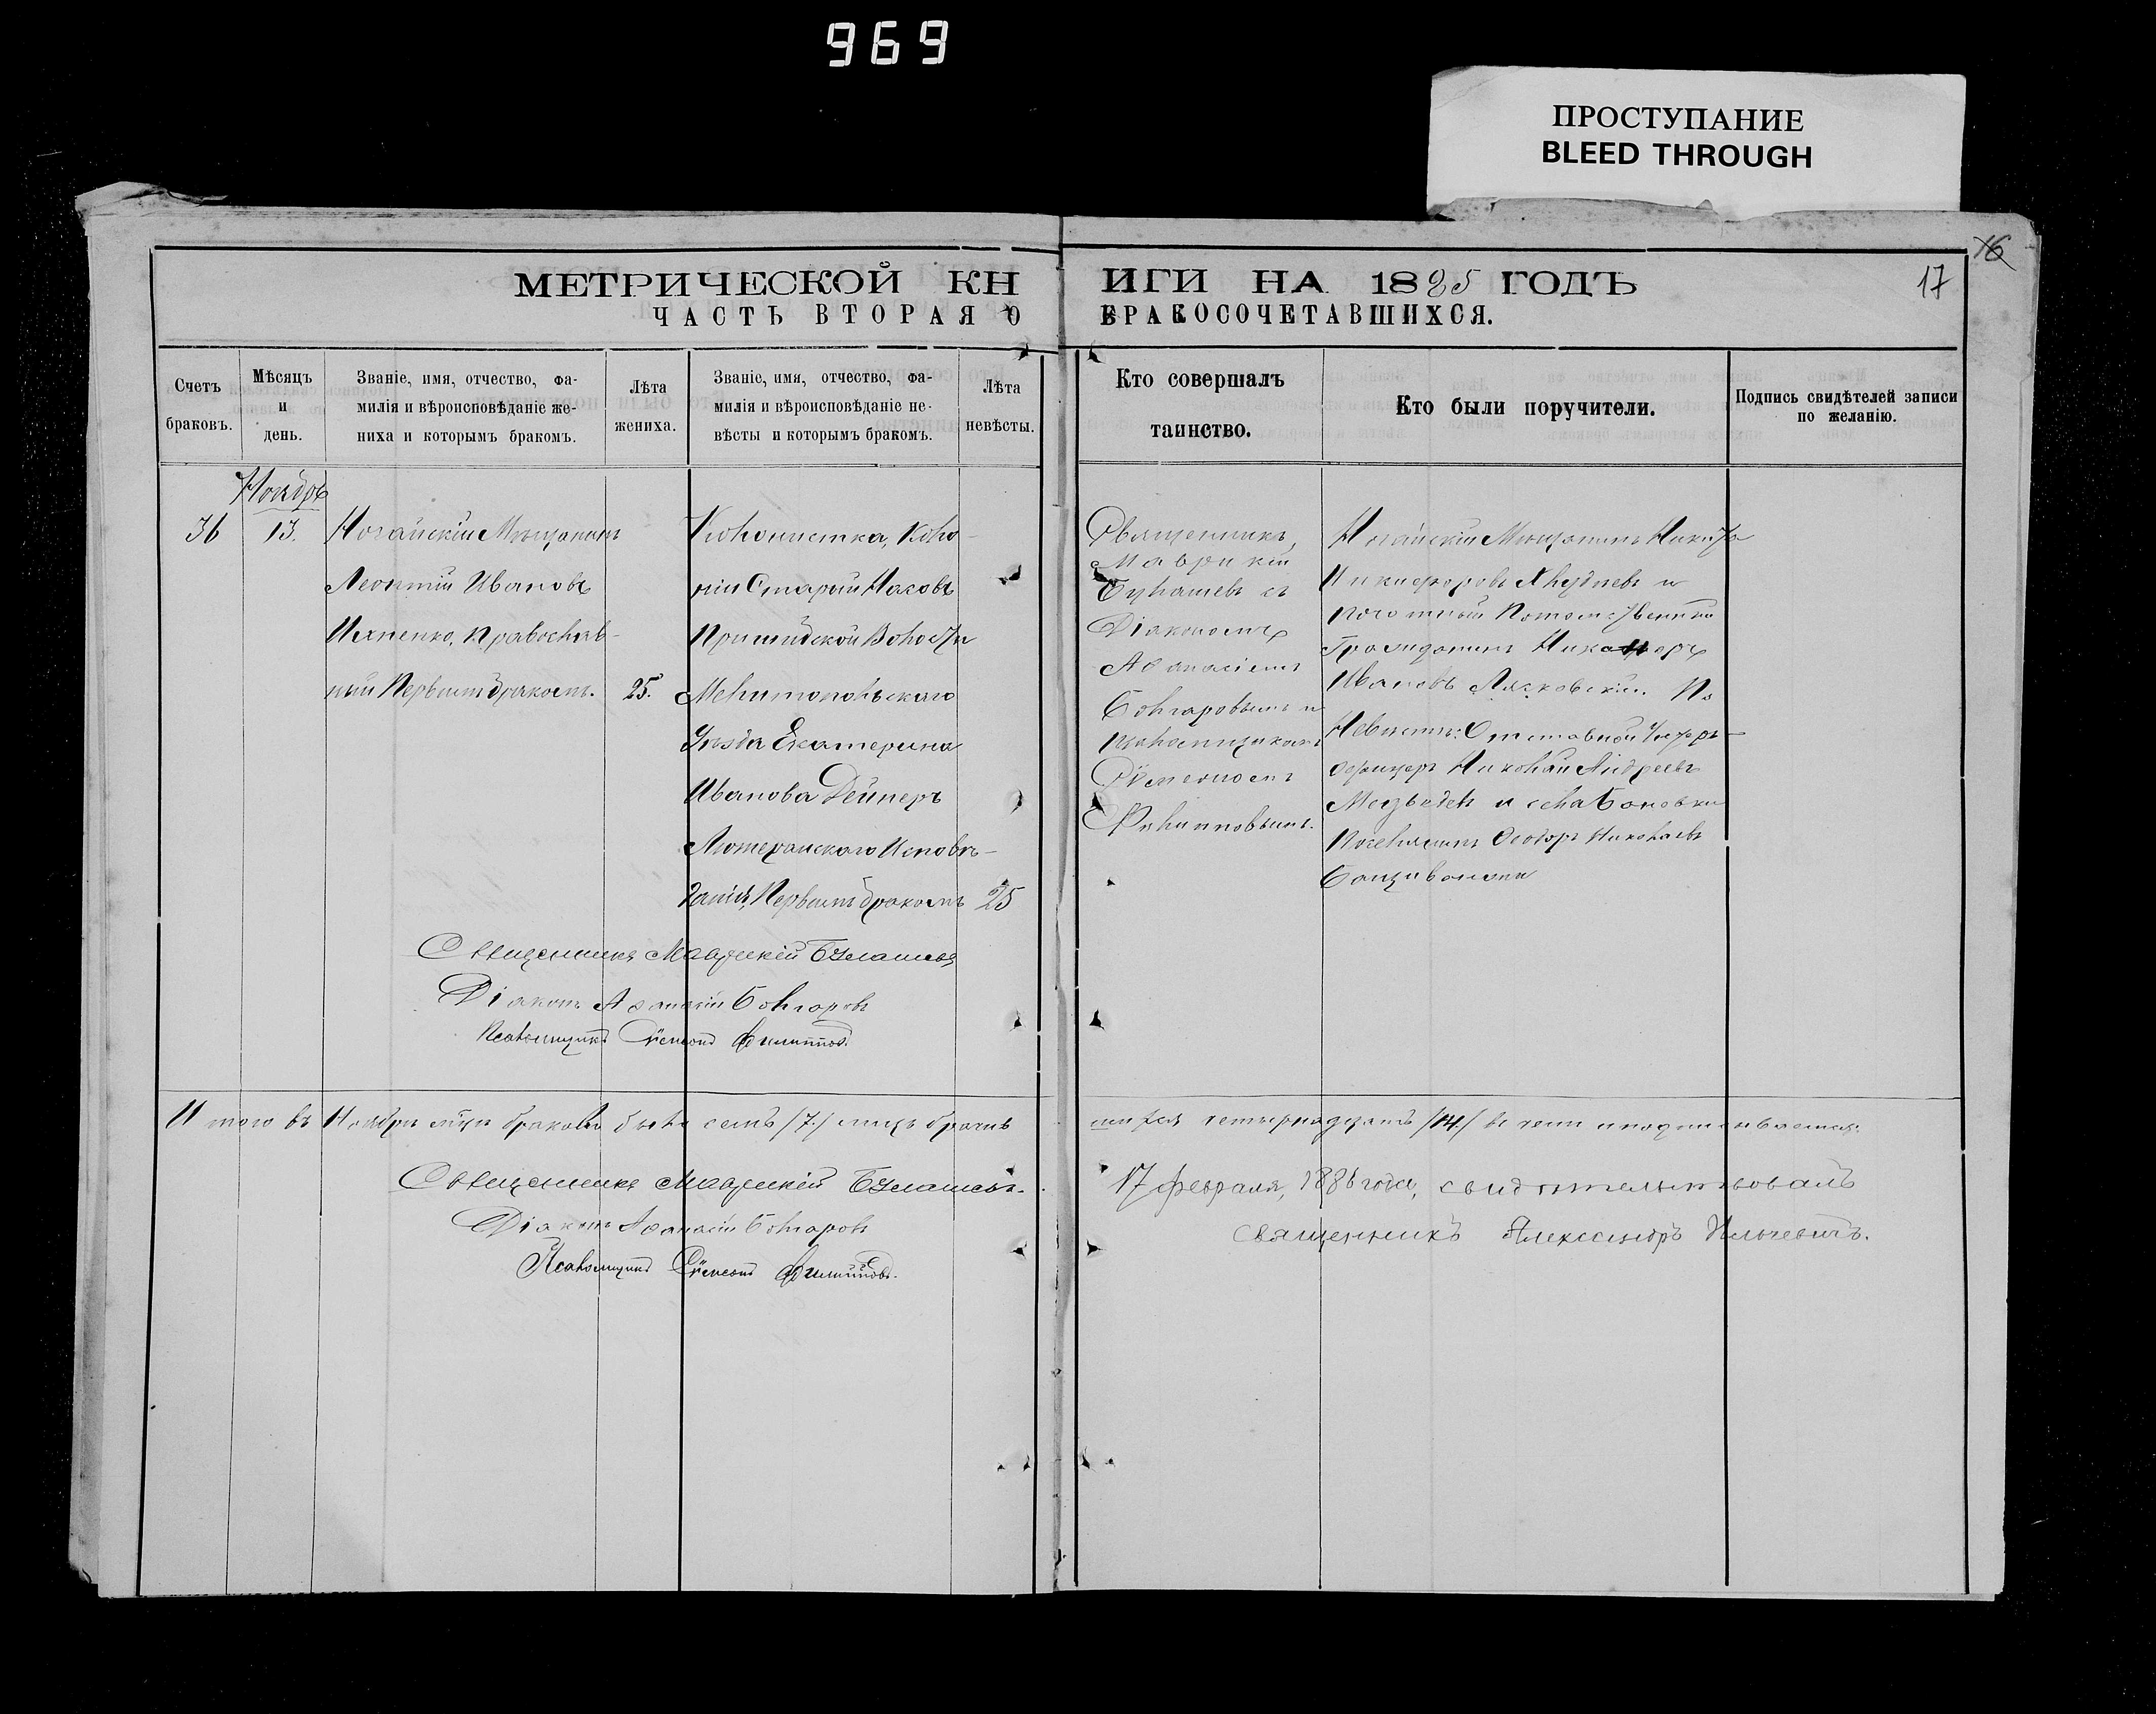 969
ПРОСТУПАНИЕ
BLEED THROUGH
16
17
МЕТРИЧЕСКОЙ КНИГИ НА 1885 ГОДЪ
ЧАСТЬ ВТОРАЯ О БРАКОСОЧЕТАВШИХСЯ.
Счетъ
браковъ.
Мѣсяцъ
и
день.
Званіе, имя, отчество, фа-
милія и вѣроисповѣданіе же-
ниха и которымъ бракомъ.
Лѣта
жениха.
Званіе, имя, отчество, фа-
милія и вѣроисповѣданіе не-
вѣсты и которымъ бракомъ.
Лѣта
невѣсты.
Кто совершалъ
таинство.
Кто были поручители.
Подпись свидѣтелей записи
по желанію.
Ноябрь
36
13.
Ногайскій Мѣщанинъ
Леонтій Ивановъ
Ихненко, Православ-
ный Первымъ бракомъ.
25.
Колонистка, Коло-
ніи Старый Насовъ
Пришибской Волости
Мелитопольскаго
Уѣзда Екатерина
Иванова Дейнеръ
Лютеранскаго Исповѣ-
данія, Первымъ бракомъ
25
Священникъ
Маврикій
Булашевъ съ
Діакономъ
Аѳанасіемъ
Болгаровымъ и
псаломщикомъ
Сѵмеономъ
Филипповымъ.
Ногайскій Мѣщанинъ Никита
Никифоровъ и
почотный Потомственный
Гражданинъ Никаноръ
Ивановъ Лясковскій. По
Невѣстѣ: Отставной Унтеръ-
офицеръ Николай Андреевъ
Медведев и села Бановки
Поселянинъ Ѳеодоръ Николаевъ
Священникъ Маврикій Булашевъ
Діаконъ Аѳанасій Болгаровъ
Псаломщикъ Сѵмеонъ Филипповъ.
Итого въ Ноябрѣ мѣсяцѣ браковъ было семь /7/ лицъ брачив-
шихся четырнадцать /14/ въ чемъ и подписываемся.
Священникъ Маврикій Булашевъ.
Діаконъ Аѳанасій Болгаровъ
Псаломщикъ Сѵмеонъ Филипповъ.
17 февраля, 1886 года, свидѣтельствовалъ
священникъ Александръ Ильчевичъ.